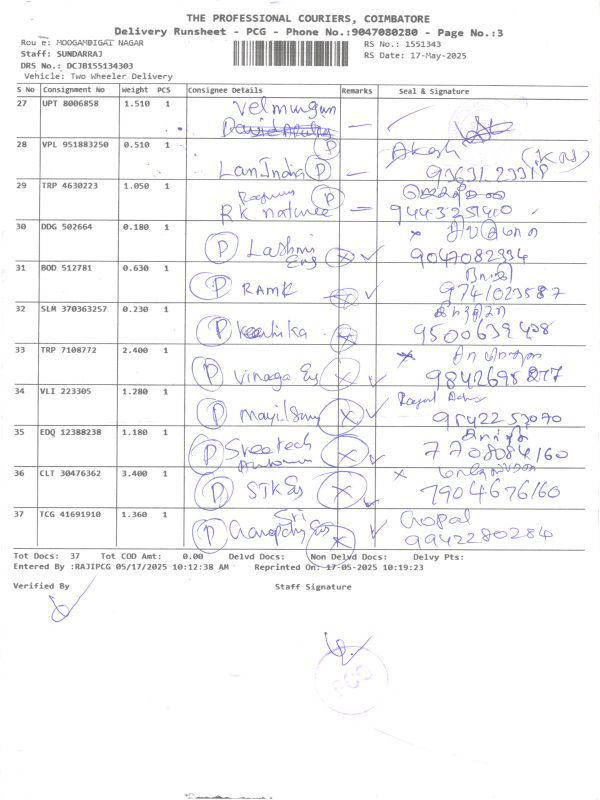 THE PROFESSIONAL COURIERS, COIMBATORE
Delivery Runsheet - PCG - Phone No.:9047080280 - Page No.:3
Rou e: MOOGAMBIGAI NAGAR
Staff: SUNDARRAJ
DRS No.: DCJB155134303
Vehicle: Two Wheeler Delivery
RS No.: 1551343
RS Date: 17-May-2025
S No Consignment No Weight PCS Consignee Details Remarks Seal & Signature
27 UPT 8006858 1.510 1 Velmurugan
28 VPL 951883250 0.510 1 P Akash
LanIndia P
29 TRP 4630223 1.050 1 P
RK nature 9443251400
30 DDG 502664 0.180 1 P Lashmi Eng X
9047082334
31 BOD 512781 0.630 1 P RAMK 9741023587
32 SLM 370363257 0.230 1 P X
9500639408
33 TRP 7108772 2.400 1 P Vinaga Es X
34 VLI 223305 1.280 1 P X
35 EDQ 12388238 1.180 1 P Sreetech X
7708084160
36 CLT 30476362 3.400 1 P STK Es X
7904676160
37 TCG 41691910 1.360 1 P Sri X Gopal
9942280284
Tot Docs: 37 Tot COD Amt: 0.00 Delvd Docs: Non Delvd Docs: Delvy Pts:
Entered By :RAJIPCG 05/17/2025 10:12:38 AM Reprinted On: 17-05-2025 10:19:23
Verified By Staff Signature
PCG